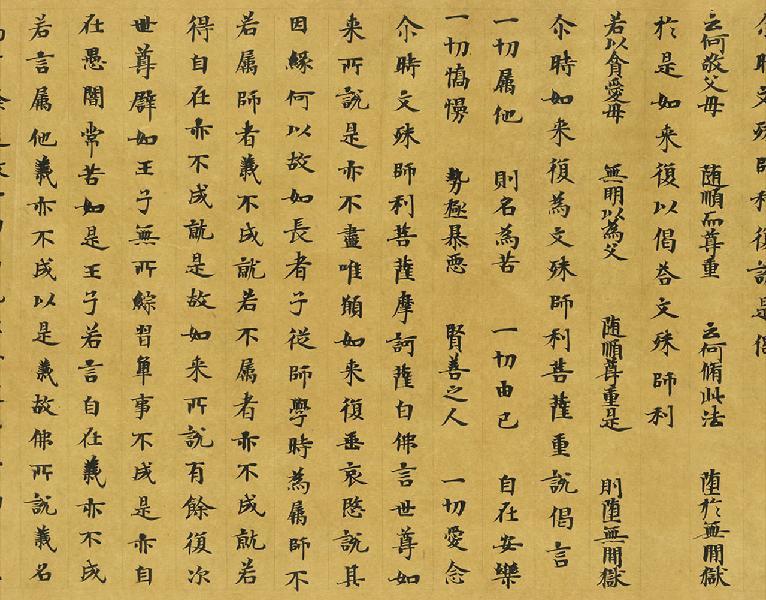 尒時文殊師利復說是偈
云何敬父母　随順而尊重　云何脩此法　墮於無間獄
於是如来復以偈荅文殊師利
若以貪愛母　無明以為父　随順尊重是　則墮無間獄
尒時如来復為文殊師利菩薩重說偈言
一切属他　則名為苦　一切由己　自在安樂
一切憍慢　勢極暴惡　賢善之人　一切愛念
尒時文殊師利菩薩摩訶薩白佛言世尊如
来所說是亦不盡唯願如来復垂哀愍說其
因緣何以故如長者子從師學時為属師不
若属師者義不成就若不属者亦不成就若
得自在亦不成就是故如来所說有餘復次
世尊辟如王子無所綜習觸事不成是亦自
在愚闇常苦如是王子若言自在義亦不成
若言属他義亦不成以是義故佛所說義名